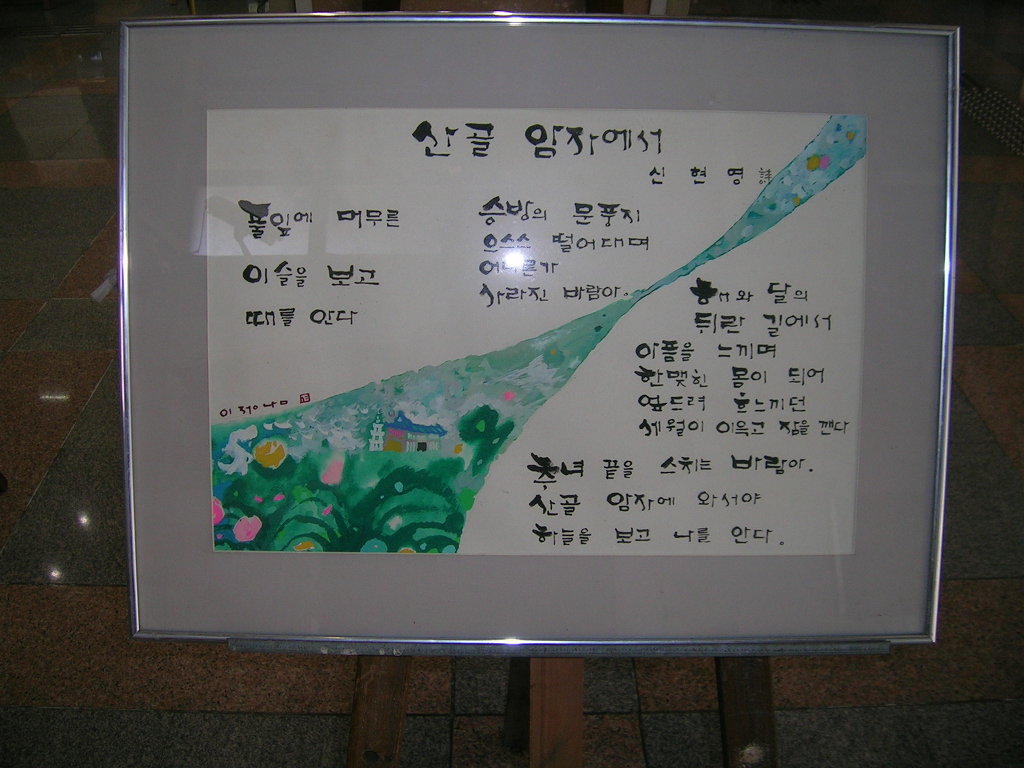 산골 암자에서
신현영 詩
풀잎에 머무른
이슬을 보고
때를 안다
승방의 문풍지
으스스 떨어대며
어디론가
사라진 바람아.
해와 달의
뒤란 길에서
아픔을 느끼며
한맺힌 몸이 되어
엎드려 흐느끼던
세월이 이윽고 잠을 깬다
추녀 끝을 스치는 바람아.
산골 암자에 와서야
하늘을 보고 나를 안다.